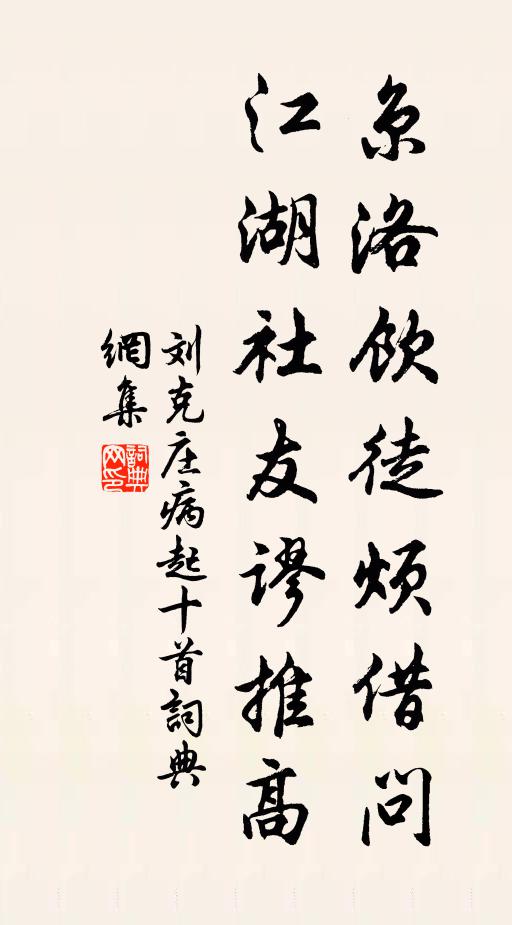 京洛饮徒烦借问
江湖社友谬推高
刘克庄病起十首詞典
網集
詞典网印